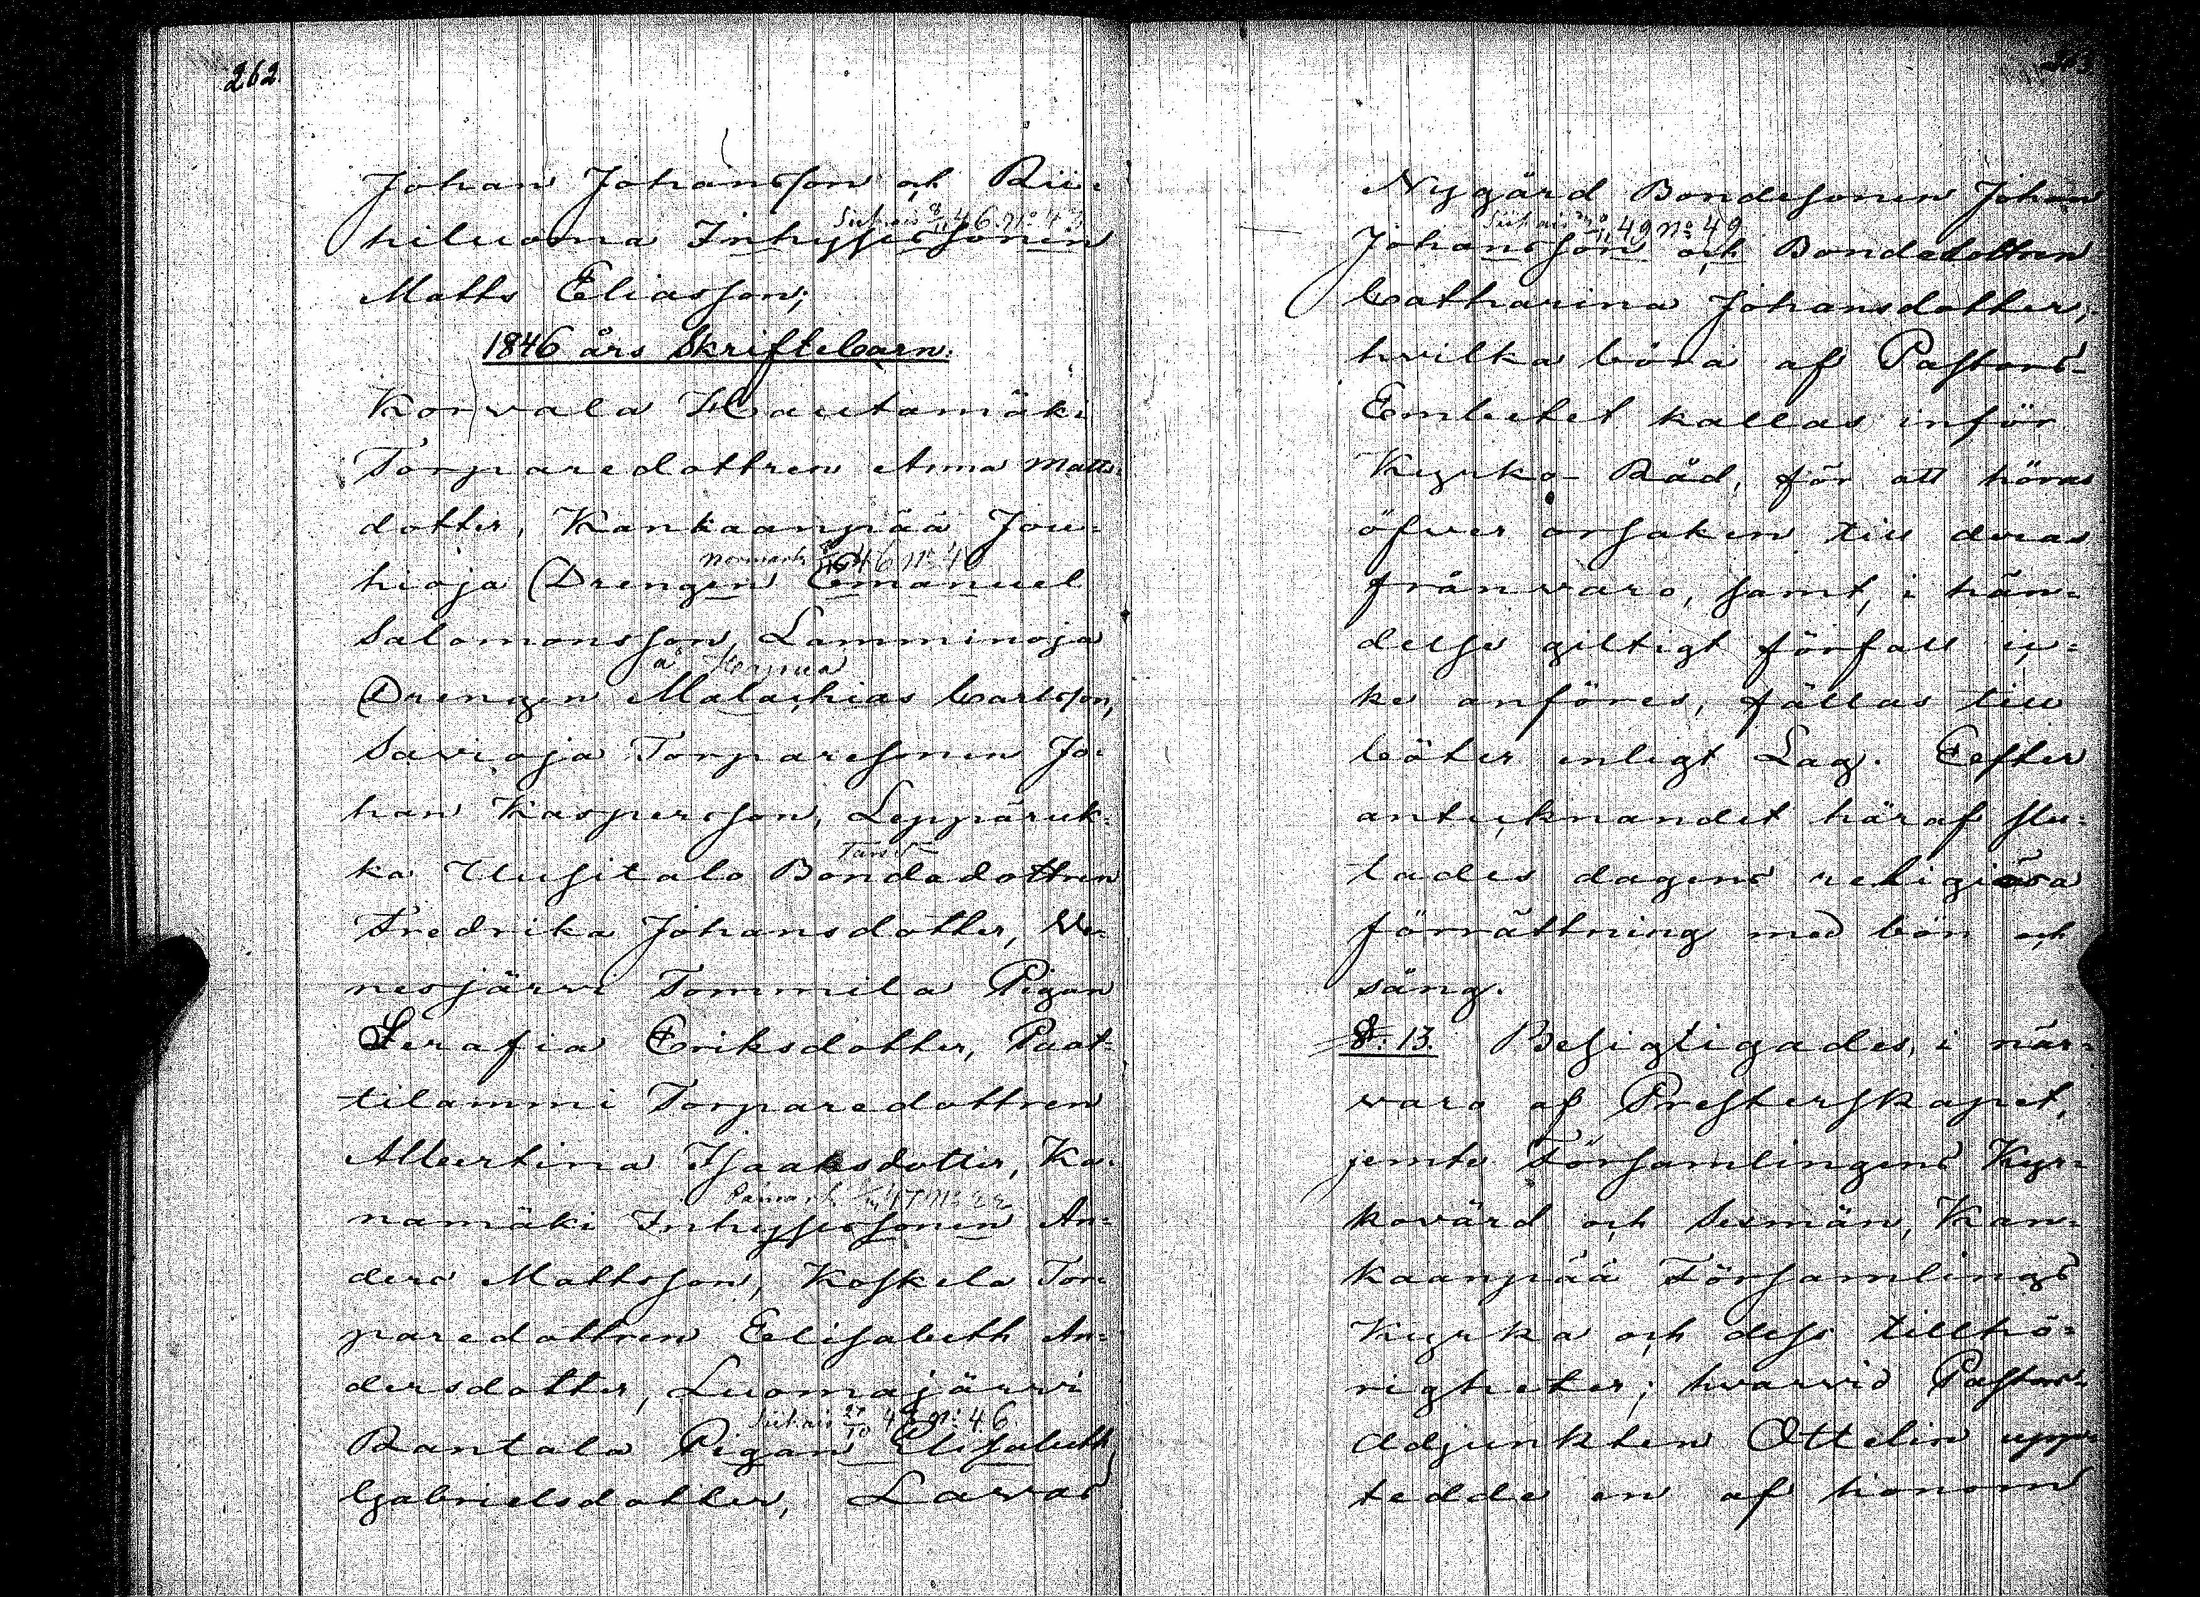 262
Johan Johansson och Rii-
Siikais 8/11 46 No 43
hiluoma Inhysessonen
Matts Eliasson;
1846 års Skriftebarn:
Korvala Hautamäki
Torparedottren Anna Matts-
dotter, Kankaanpää Jou-
Normark 46 No 40
hioja Drengen Emanuel
Salomonsson, Lamminoja
å
Drengen Malachias Carlsson,
Savioja Torparesonen Jo-
han Kaspersson, Leppäruk-
ka Uusitalo Bondedottren
Fredrika Johansdotter, Ve-
nesjärvi Tommila Pigan
Serafia Eriksdotter, Paat-
tilammi Torparedottren
Albertina Isaaksdotter, Ka-
Påmark 47 No 22
namäki Inhysessonen An-
ders Mattsson, Koskela Tor-
paredottren Elisabeth An-
dersdotter, Luomajärvi
Siikais 27/10 48 No 46
Rantala Pigan Elisabeth
Gabrielsdotter, Lavas
263
Nygård Bondesonen Johan
Siikais 49 No 49
Johansson och Bondedottren
Catharina Johansdotter,
hvilka böra af Pastors-
Embetet kallas inför
Kyrko-Råd, för att höras
öfver orsaken till deras
frånvaro, samt, i hän-
delse giltigt förfall ic-
ke anföres, fällas till
böter enligt Lag. Efter
antecknandet häraf slu-
tades dagens religiösa
förrättning med bön och
sång.
§. 13. Besigtigades, i när-
varo af Presterskapet,
jemte Församlingens Kyr-
kovärd och Sexmän, Kan-
kaanpää Församlings
Kyrka och dess tillhö-
righeter; hvarvid Pastors-
Adjunkten Ottelin upp-
tedde en af honom